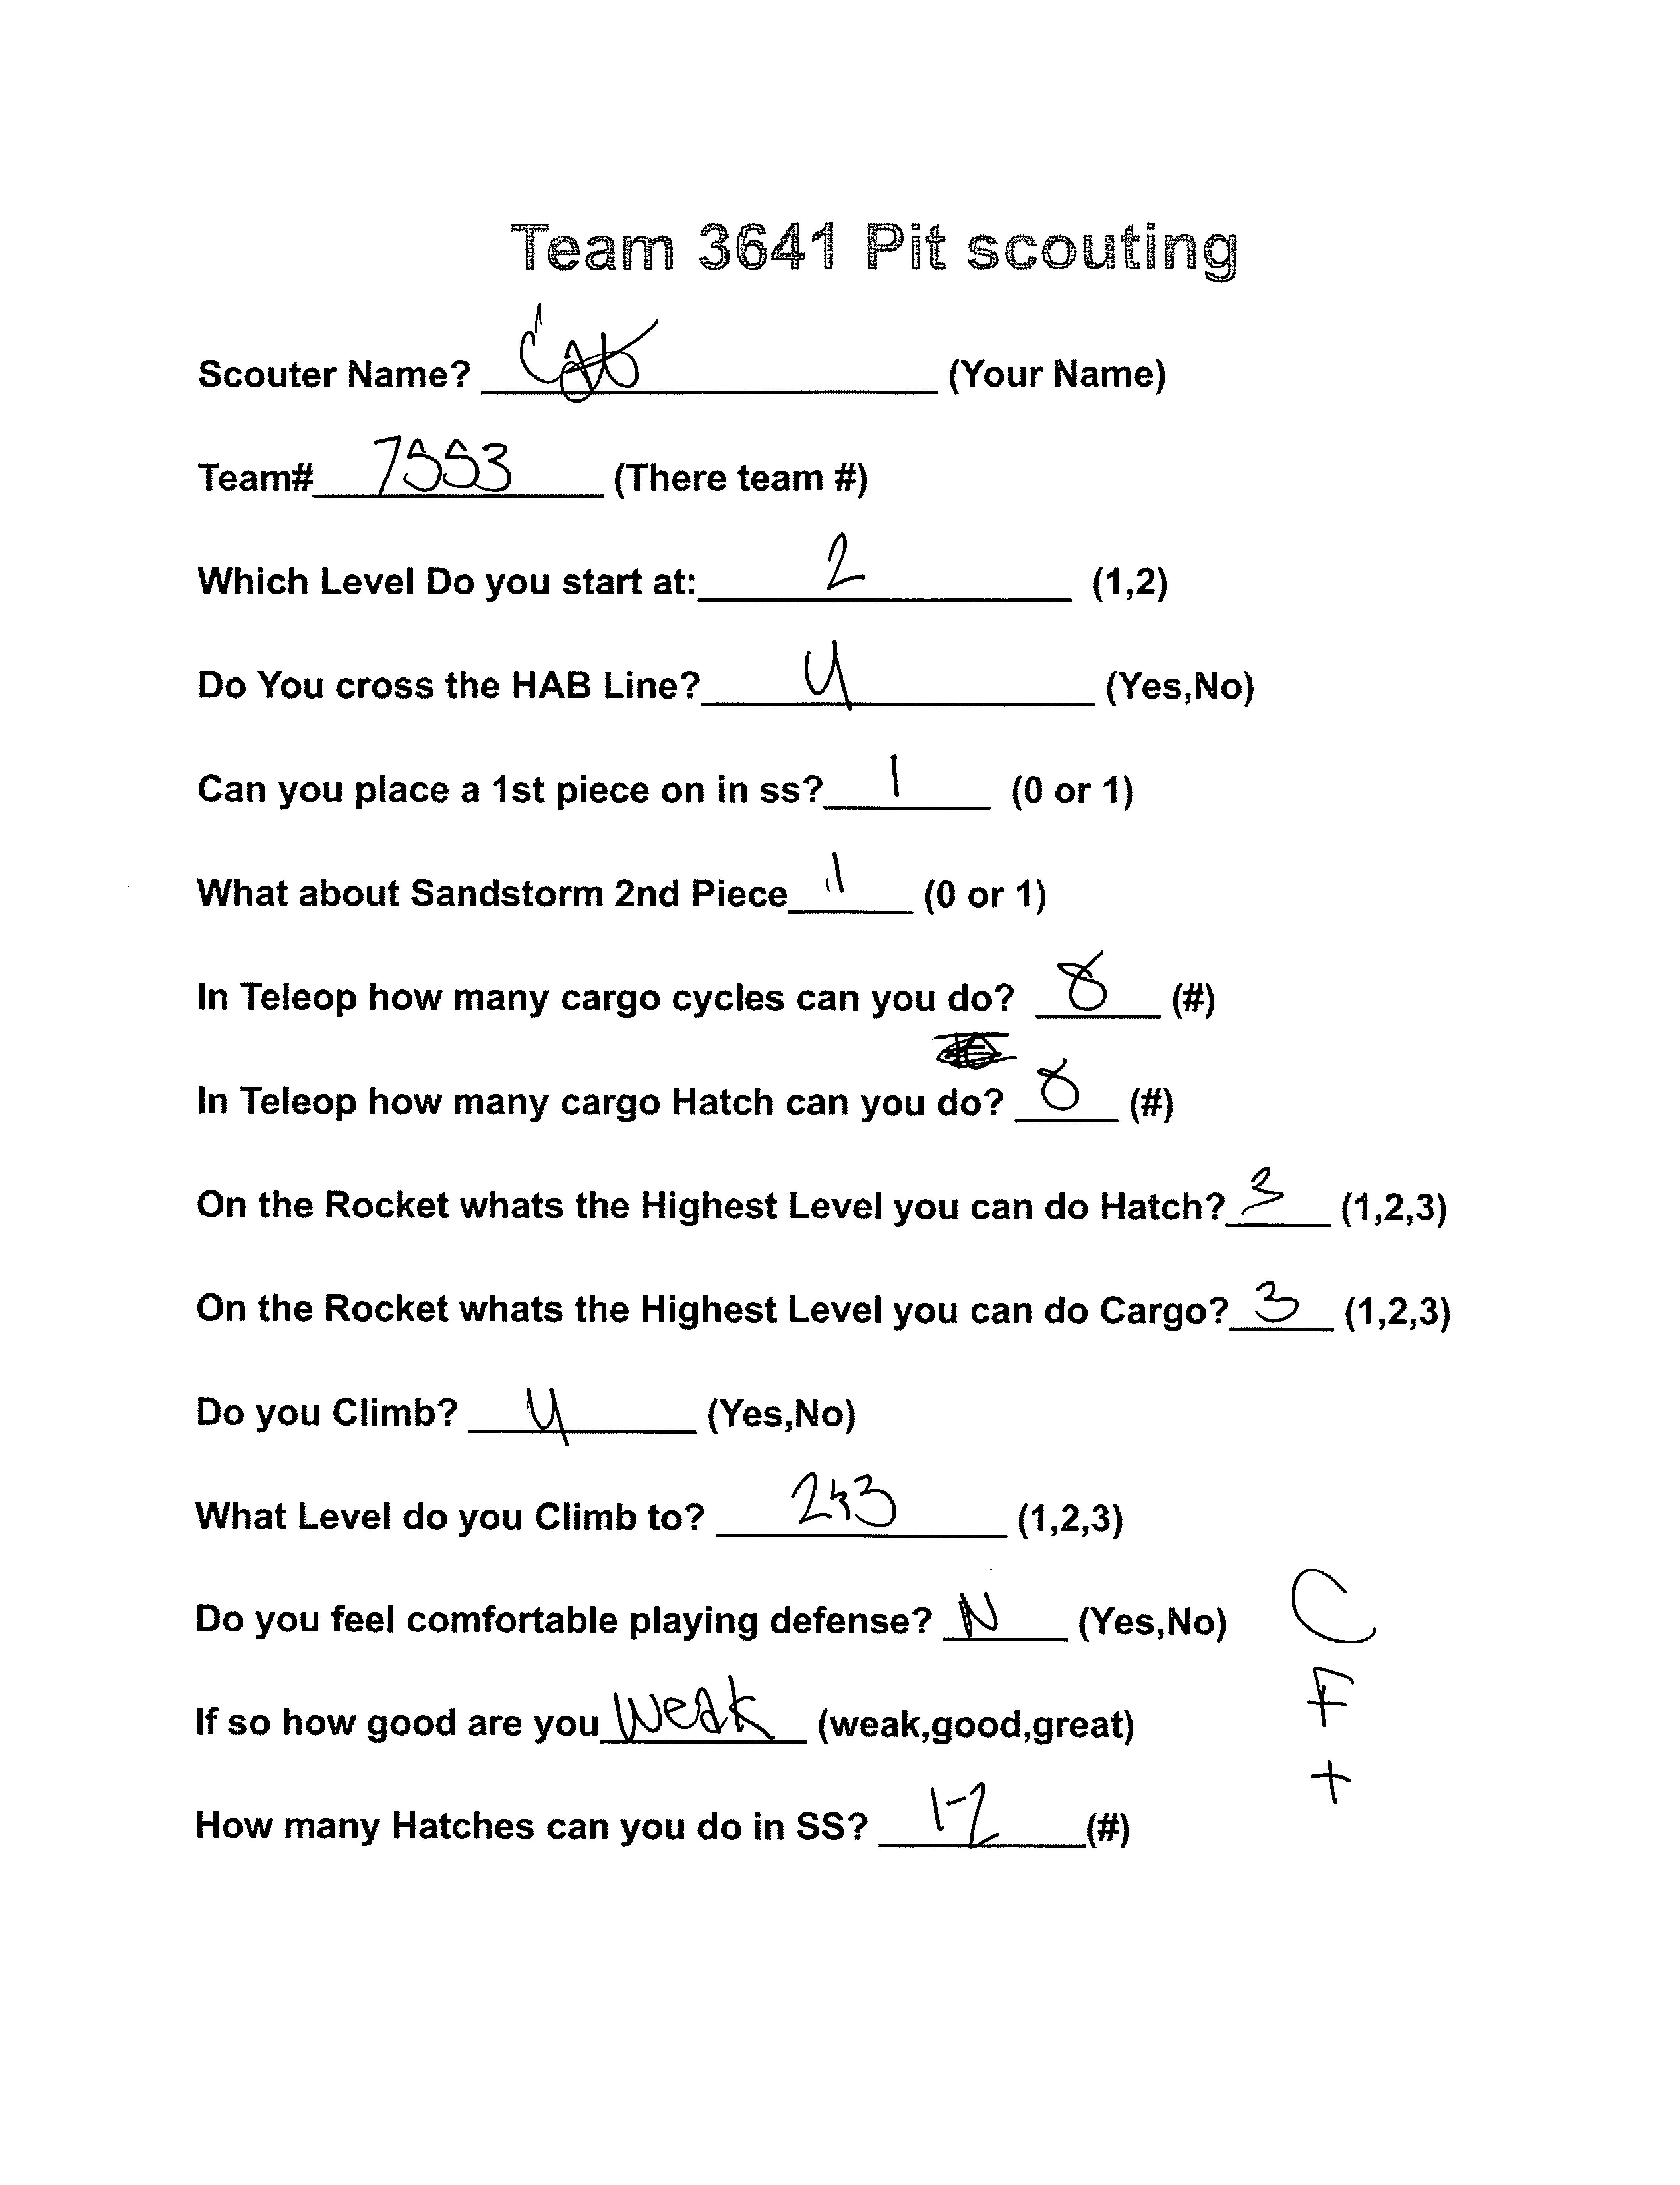 Team 3641 Pit scouting
Scouter Name? (Your Name)
Team# 7553 (There team #)
Which Level Do you start at: 2 (1,2)
Do You cross the HAB Line? y (Yes,No)
Can you place a 1st piece on in ss? 1 (0 or 1)
What about Sandstorm 2nd Piece 1 (0 or 1)
In Teleop how many cargo cycles can you do? 8 (#)
In Teleop how many cargo Hatch can you do? 8 (#)
On the Rocket whats the Highest Level you can do Hatch? 3 (1,2,3)
On the Rocket whats the Highest Level you can do Cargo? 3 (1,2,3)
Do you Climb? y (Yes,No)
What Level do you Climb to? 2&3 (1,2,3)
Do you feel comfortable playing defense? N (Yes,No) C
If so how good are you weak (weak,good,great) F
+
How many Hatches can you do in SS? 1-2 (#)